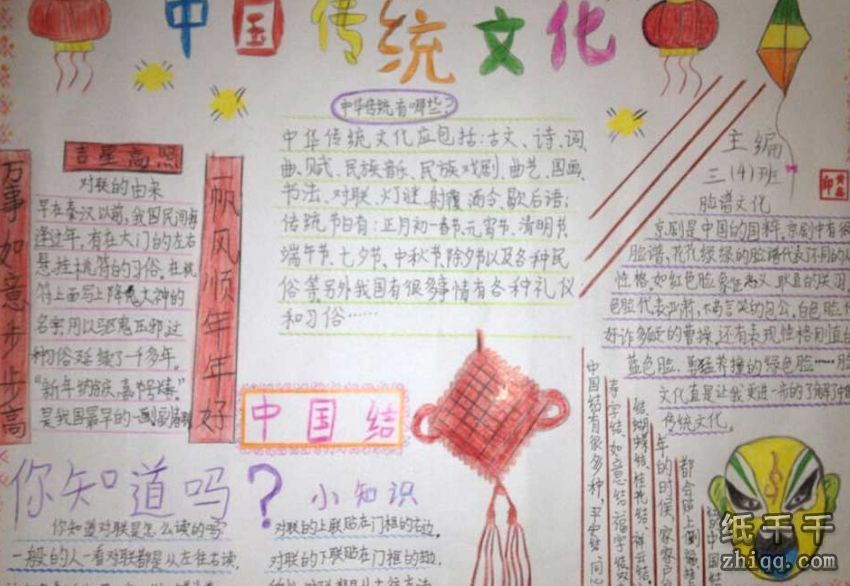 中国传统文化
中华传统有哪些?
中华传统文化应包括:古文、诗、词、
曲、赋、民族音乐、民族戏剧、曲艺、国画、
书法、对联、灯谜、射覆、酒令、歇后语;
传统节日有:正月初一春节、元宵节、清明节、
端午节、七夕节、中秋节、除夕节以及各种民
俗等,另外我国有很多事情有各种礼仪
和习俗……
吉星高照
万事如意步步高
一帆风顺年年好
对联的由来
早在秦汉以前,我国民间每
逢过年,有在大门的左右
悬挂桃符的习俗。在桃
符上面写上降鬼大神的
名字,用以驱鬼压邪,这
种习俗延续了一千多年。
"新年纳余庆,嘉节号长春"
是我国最早的一副
主编
三(4)班
脸谱文化
京剧是中国的国粹,京剧中有很
脸谱,花花绿绿的脸谱代表不同的人
性格,如红色脸象征忠义、耿直的关羽
色脸代表严肃,不苟言笑的包公,白色脸
奸诈多疑的曹操,还有表现性格刚直的
蓝色脸、勇猛莽撞的绿色脸……脸
文化真是让我更进一步的了解了中国
传统文化。
中国结
中国结有很多种,
寿字结、如意结、福字
结、蝴蝶结、
年的时候,家家户
都会贴上倒
你知道吗?
小知识
你知道对联是怎么读的吗?
一般的人一看对联都是从左往右读,
对联的上联贴在门框的右边,
对联的下联贴在门框的
纸千千
zhiqq.com